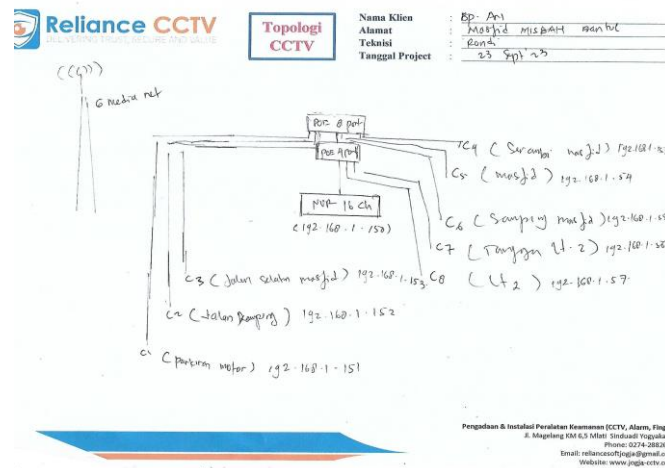 Reliance CCTV
DELIVERING TRUST, SECURE AND VALUE
Topologi
CCTV
Nama Klien : Bp. Ari
Alamat : Masjid MISBAH Bantul
Teknisi : Rondi
Tanggal Project : 23 Sept '23
((( )))
G media net
POE 8 port
POE 4 port
NVR 16 ch
(192.168.1.150)
C4 (Serambi masjid) 192.168.1.
C5 (masjid) 192.168.1.54
C6 (Samping masjid) 192.168.1.
C7 (Tangga Lt-2) 192.168.1.
C8 (Lt 2) 192.168.1.57
C3 (Jalan Selatan masjid) 192.168.1.153
C2 (Jalan Kampung) 192.168.1.152
C1 (parkiran motor) 192.168.1.151
Pengadaan & Instalasi Peralatan Keamanan (CCTV, Alarm, Fing
Jl. Magelang KM 6,5 Mlati Sinduadi Yogyaka
Phone: 0274-2882
Email: reliancesoftjogja@gmail.c
Website: www.jogja-cctv.c